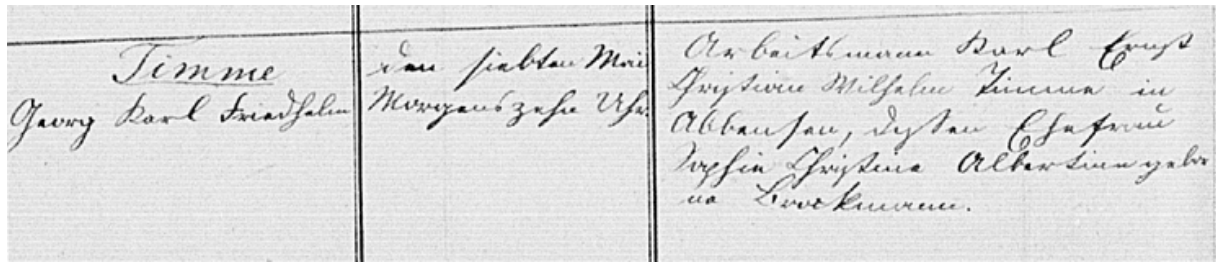 Timme
Georg Karl Friedhelm
den siebten Mai
Morgens zehn Uhr.
Arbeitsmann Karl Ernst
Christian Wilhelm Timme in
Abbensen, dessen Ehefrau
Sophie Christine Albertine gebor
ne Brockmann.